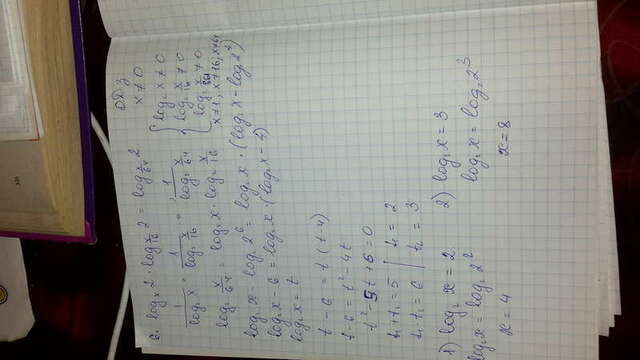 6. log_x 2 · log_{x/16} 2 = log_{x/64} 2
1/log₂x · 1/log₂(x/16) = 1/log₂(x/64)
log₂(x/64) = log₂x · log₂(x/16)
log₂x - log₂2⁶ = log₂x · (log₂x - log₂2⁴)
log₂x - 6 = log₂x · (log₂x - 4)
log₂x = t
t - 6 = t(t-4)
t - 6 = t² - 4t
t² - 5t + 6 = 0
t₁ + t₂ = 5 | t₁ = 2
t₁ t₂ = 6 | t₂ = 3
1) log₂x = 2
log₂x = log₂2²
x = 4
2) log₂x = 3
log₂x = log₂2³
x = 8
ОДЗ
x ≠ 0
log₂x ≠ 0
log₂(x/16) ≠ 0
log₂(x/64) ≠ 0
x≠1, x≠16, x≠64